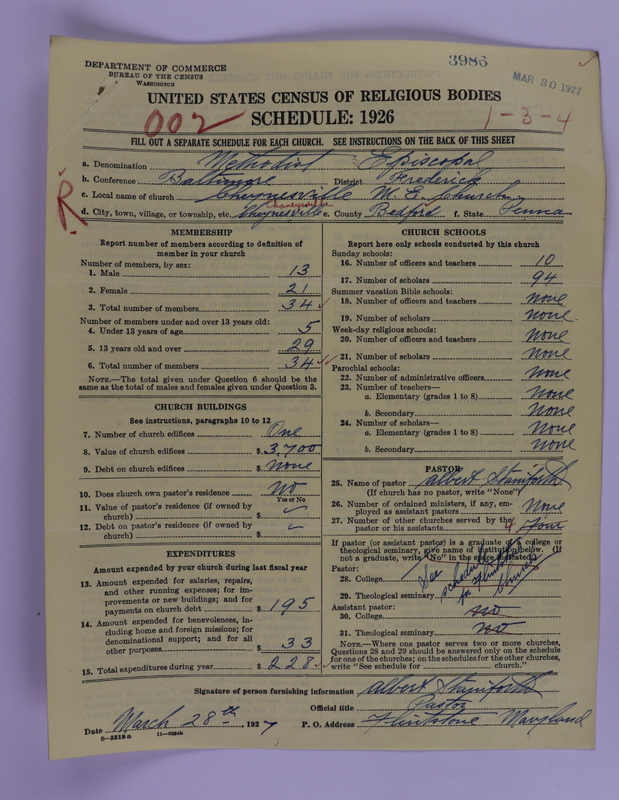 DEPARTMENT OF COMMERCE
BUREAU OF THE CENSUS
WASHINGTON
3986
MAR 30 1927
UNITED STATES CENSUS OF RELIGIOUS BODIES
SCHEDULE: 1926
002
1-3-4
FILL OUT A SEPARATE SCHEDULE FOR EACH CHURCH. SEE INSTRUCTIONS ON THE BACK OF THIS SHEET
a. Denomination Methodist Episcopal
b. Conference Baltimore District Frederick
c. Local name of church Cheynesville M. E. Church
Chaneysville
R
d. City, town, village, or township, etc. Cheynesville e. County Bedford f. State Penna
MEMBERSHIP
Report number of members according to definition of
member in your church
Number of members, by sex:
1. Male 13
2. Female 21
3. Total number of members 34
Number of members under and over 13 years old:
4. Under 13 years of age 5
5. 13 years old and over 29
6. Total number of members 34
NOTE.—The total given under Question 6 should be the
same as the total of males and females given under Question 3.
CHURCH BUILDINGS
See instructions, paragraphs 10 to 12
7. Number of church edifices One
8. Value of church edifices $ 3,700
9. Debt on church edifices $ None
10. Does church own pastor's residence No
Yes or No
11. Value of pastor's residence (if owned by
church) $
12. Debt on pastor's residence (if owned by
church) $
EXPENDITURES
Amount expended by your church during last fiscal year
13. Amount expended for salaries, repairs,
and other running expenses; for im-
provements or new buildings; and for
payments on church debt $ 195
14. Amount expended for benevolences, in-
cluding home and foreign missions; for
denominational support; and for all
other purposes $ 33
15. Total expenditures during year $ 228
CHURCH SCHOOLS
Report here only schools conducted by this church
Sunday schools:
16. Number of officers and teachers 10
17. Number of scholars 94
Summer vacation Bible schools:
18. Number of officers and teachers none
19. Number of scholars none
Week-day religious schools:
20. Number of officers and teachers none
21. Number of scholars none
Parochial schools:
22. Number of administrative officers none
23. Number of teachers—
a. Elementary (grades 1 to 8) none
b. Secondary none
24. Number of scholars—
a. Elementary (grades 1 to 8) none
b. Secondary none
PASTOR
25. Name of pastor Albert Staniforth
(If church has no pastor, write "None")
26. Number of ordained ministers, if any, em-
ployed as assistant pastors None
27. Number of other churches served by the
pastor or his assistants 4 Four
If pastor (or assistant pastor) is a graduate of a college or
theological seminary, give name of institution below. (If
not a graduate, write "No" in the space indicated)
Pastor:
28. College
29. Theological seminary
See schedule for Flintstone Church
Assistant pastor:
30. College no
31. Theological seminary no
NOTE.—Where one pastor serves two or more churches,
Questions 28 and 29 should be answered only on the schedule
for one of the churches; on the schedules for the other churches,
write "See schedule for church."
Signature of person furnishing information Albert Staniforth
Official title Pastor
Date March 28th, 1927 P. O. Address Flintstone Maryland